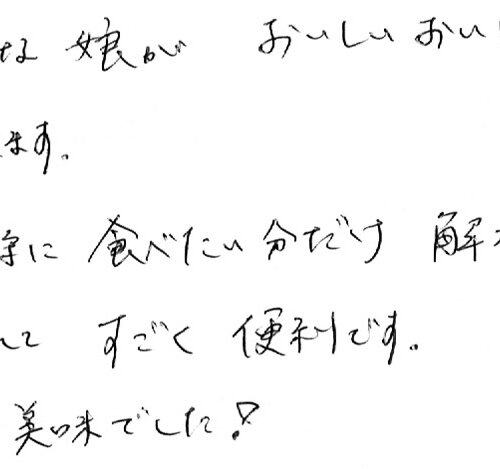 な 娘が おいしい おい
ます。
に 食べたい分だけ 解
て すごく 便利です。
美味でした!